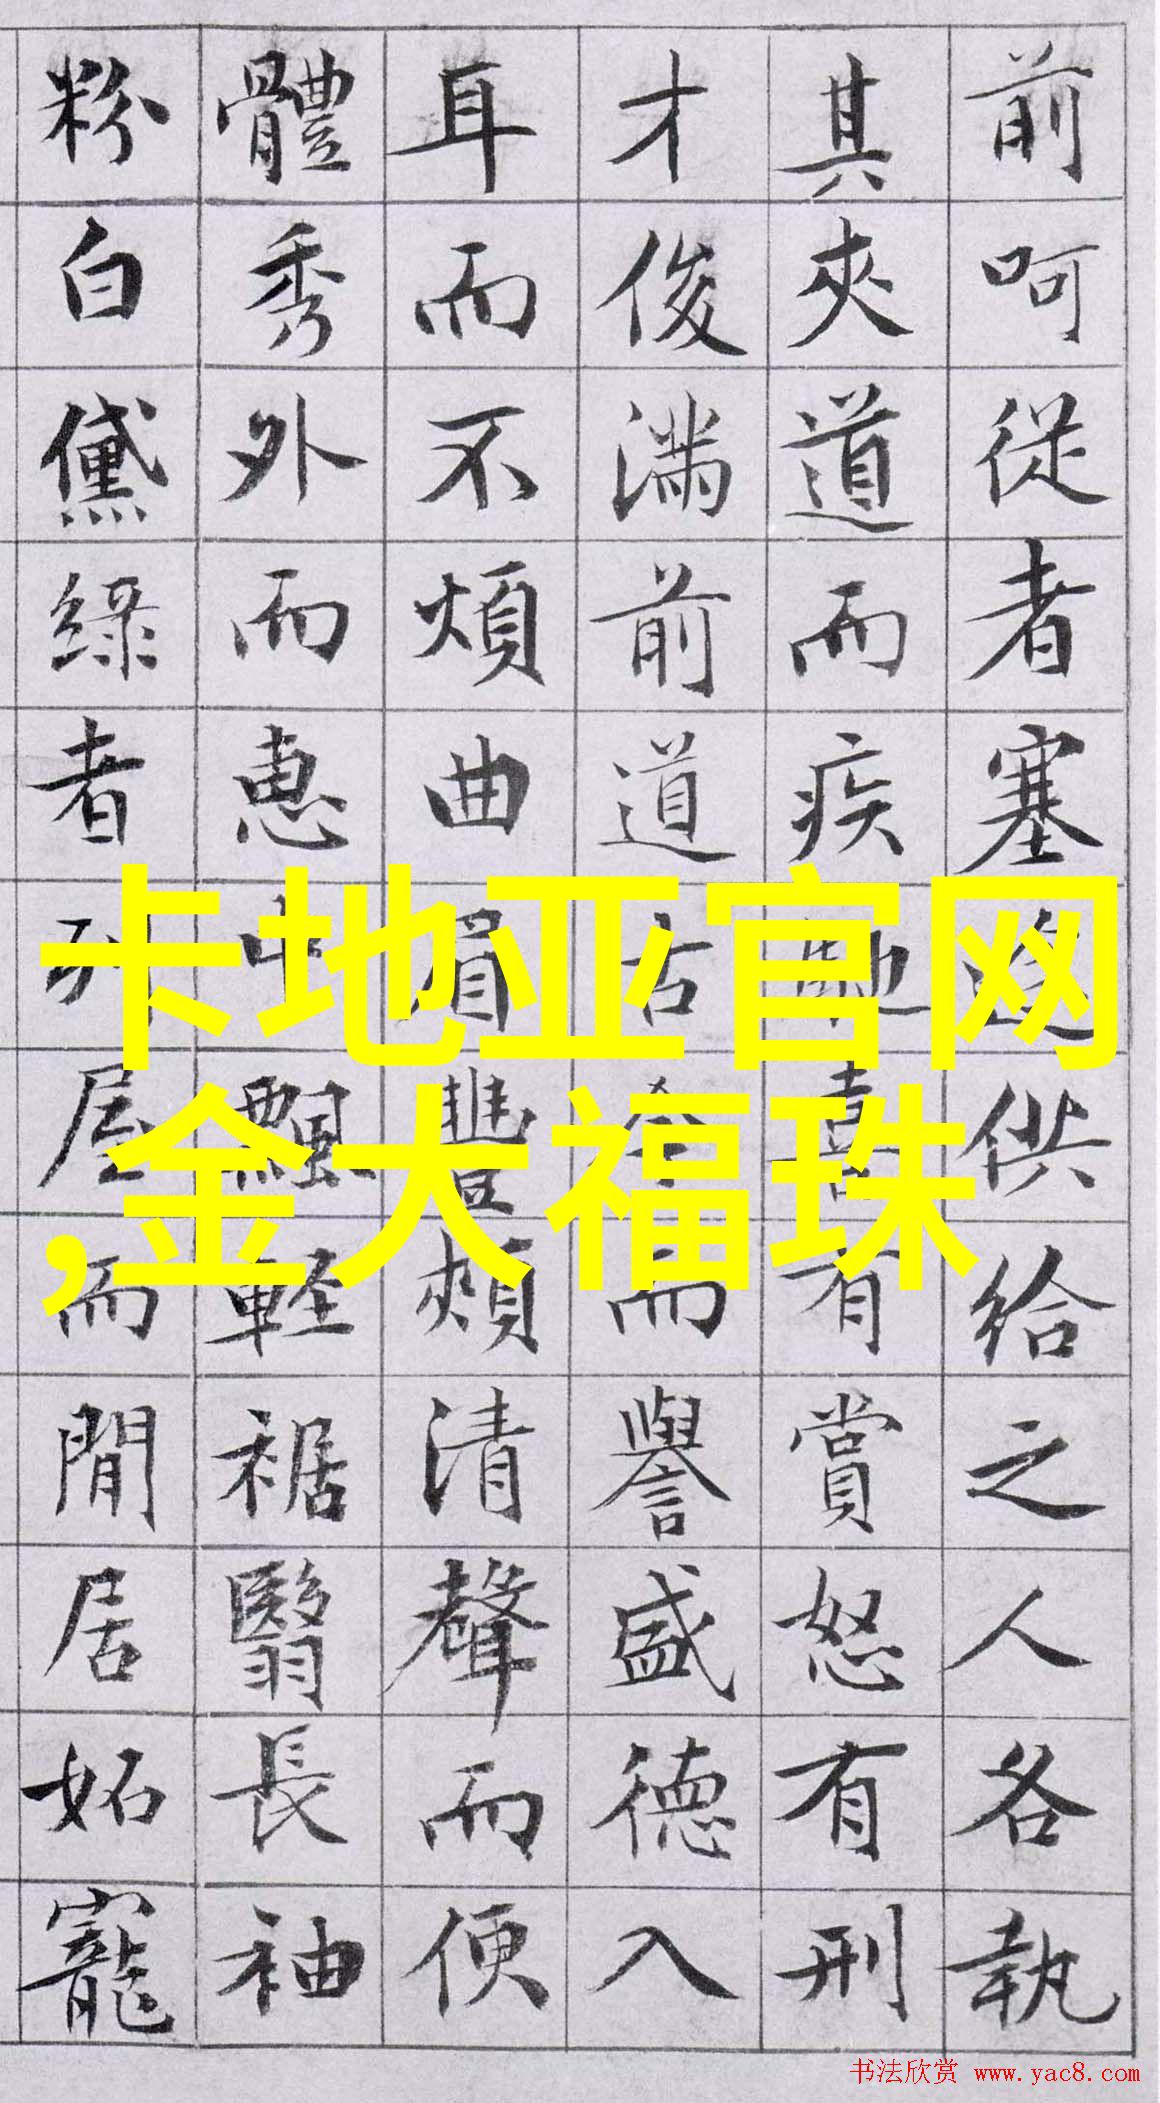 前呵從者塞途供給之人各執
其夾道而疾馳喜有賞怒有刑
才俊滿前道古今而譽盛徳入
耳而不煩曲眉豐頰清聲而便
體秀外而惠中飄軽裾翳長袖
粉白黛綠者列屋而閒居妬寵
卡地亚官网
,金大福珠
书法欣赏 www.yac8.com